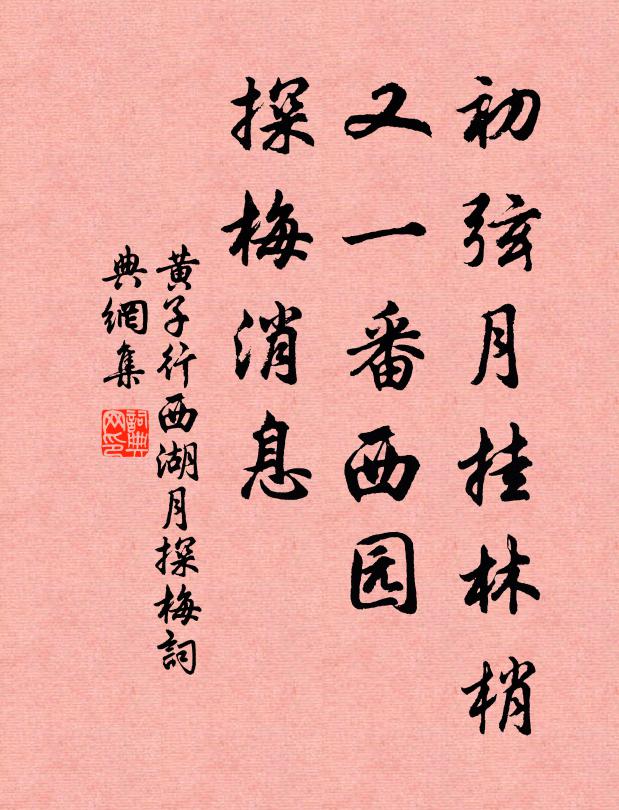 初弦月挂林梢
又一番西园
探梅消息
黄子行西湖月探梅詞
典網集
詞典網印